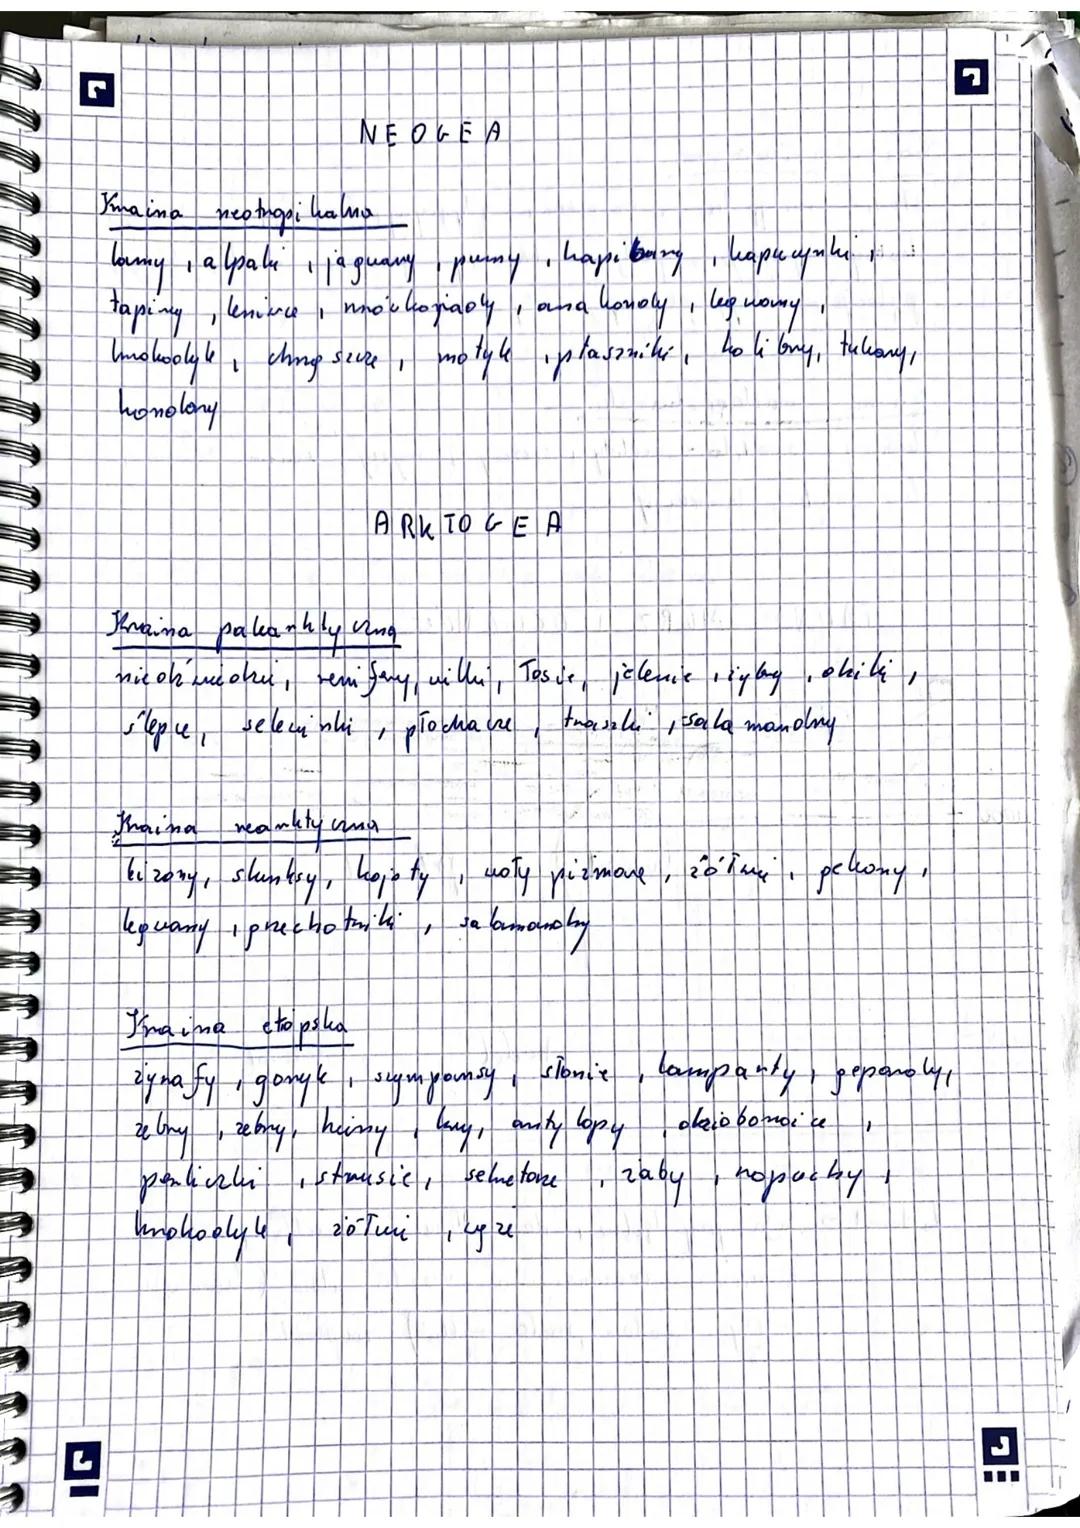 NEOGEA
Kraina neotropikalna
lamy, alpaki, jaguary, pumy, kapibary, kapucynki,
tapiry, leniwce, mrówkojady, anakondy, legwany,
krokodyle, chrząszcze, motyle, ptaszniki, kolibry, tukany,
kondory
ARKTOGEA
Kraina palearktyczna
niedźwiedzie, renifery, wilki, łosie, jelenie, żubry, dziki,
ślepce, seleviniki, płochacze, traszki, salamandry
Kraina nearktyczna
bizony, skunksy, kojoty, woły piżmowe, żółwie, pekany,
legwany, grzechotniki, salamandry
Kraina etiopska
żyrafy, goryle, szympansy, słonie, lamparty, gepardy,
zebry, zebry, hieny, lwy, antylopy, dzioborożce,
perliczki, strusie, sekretarze, żaby, ropuchy,
krokodyle, żółwie, węże